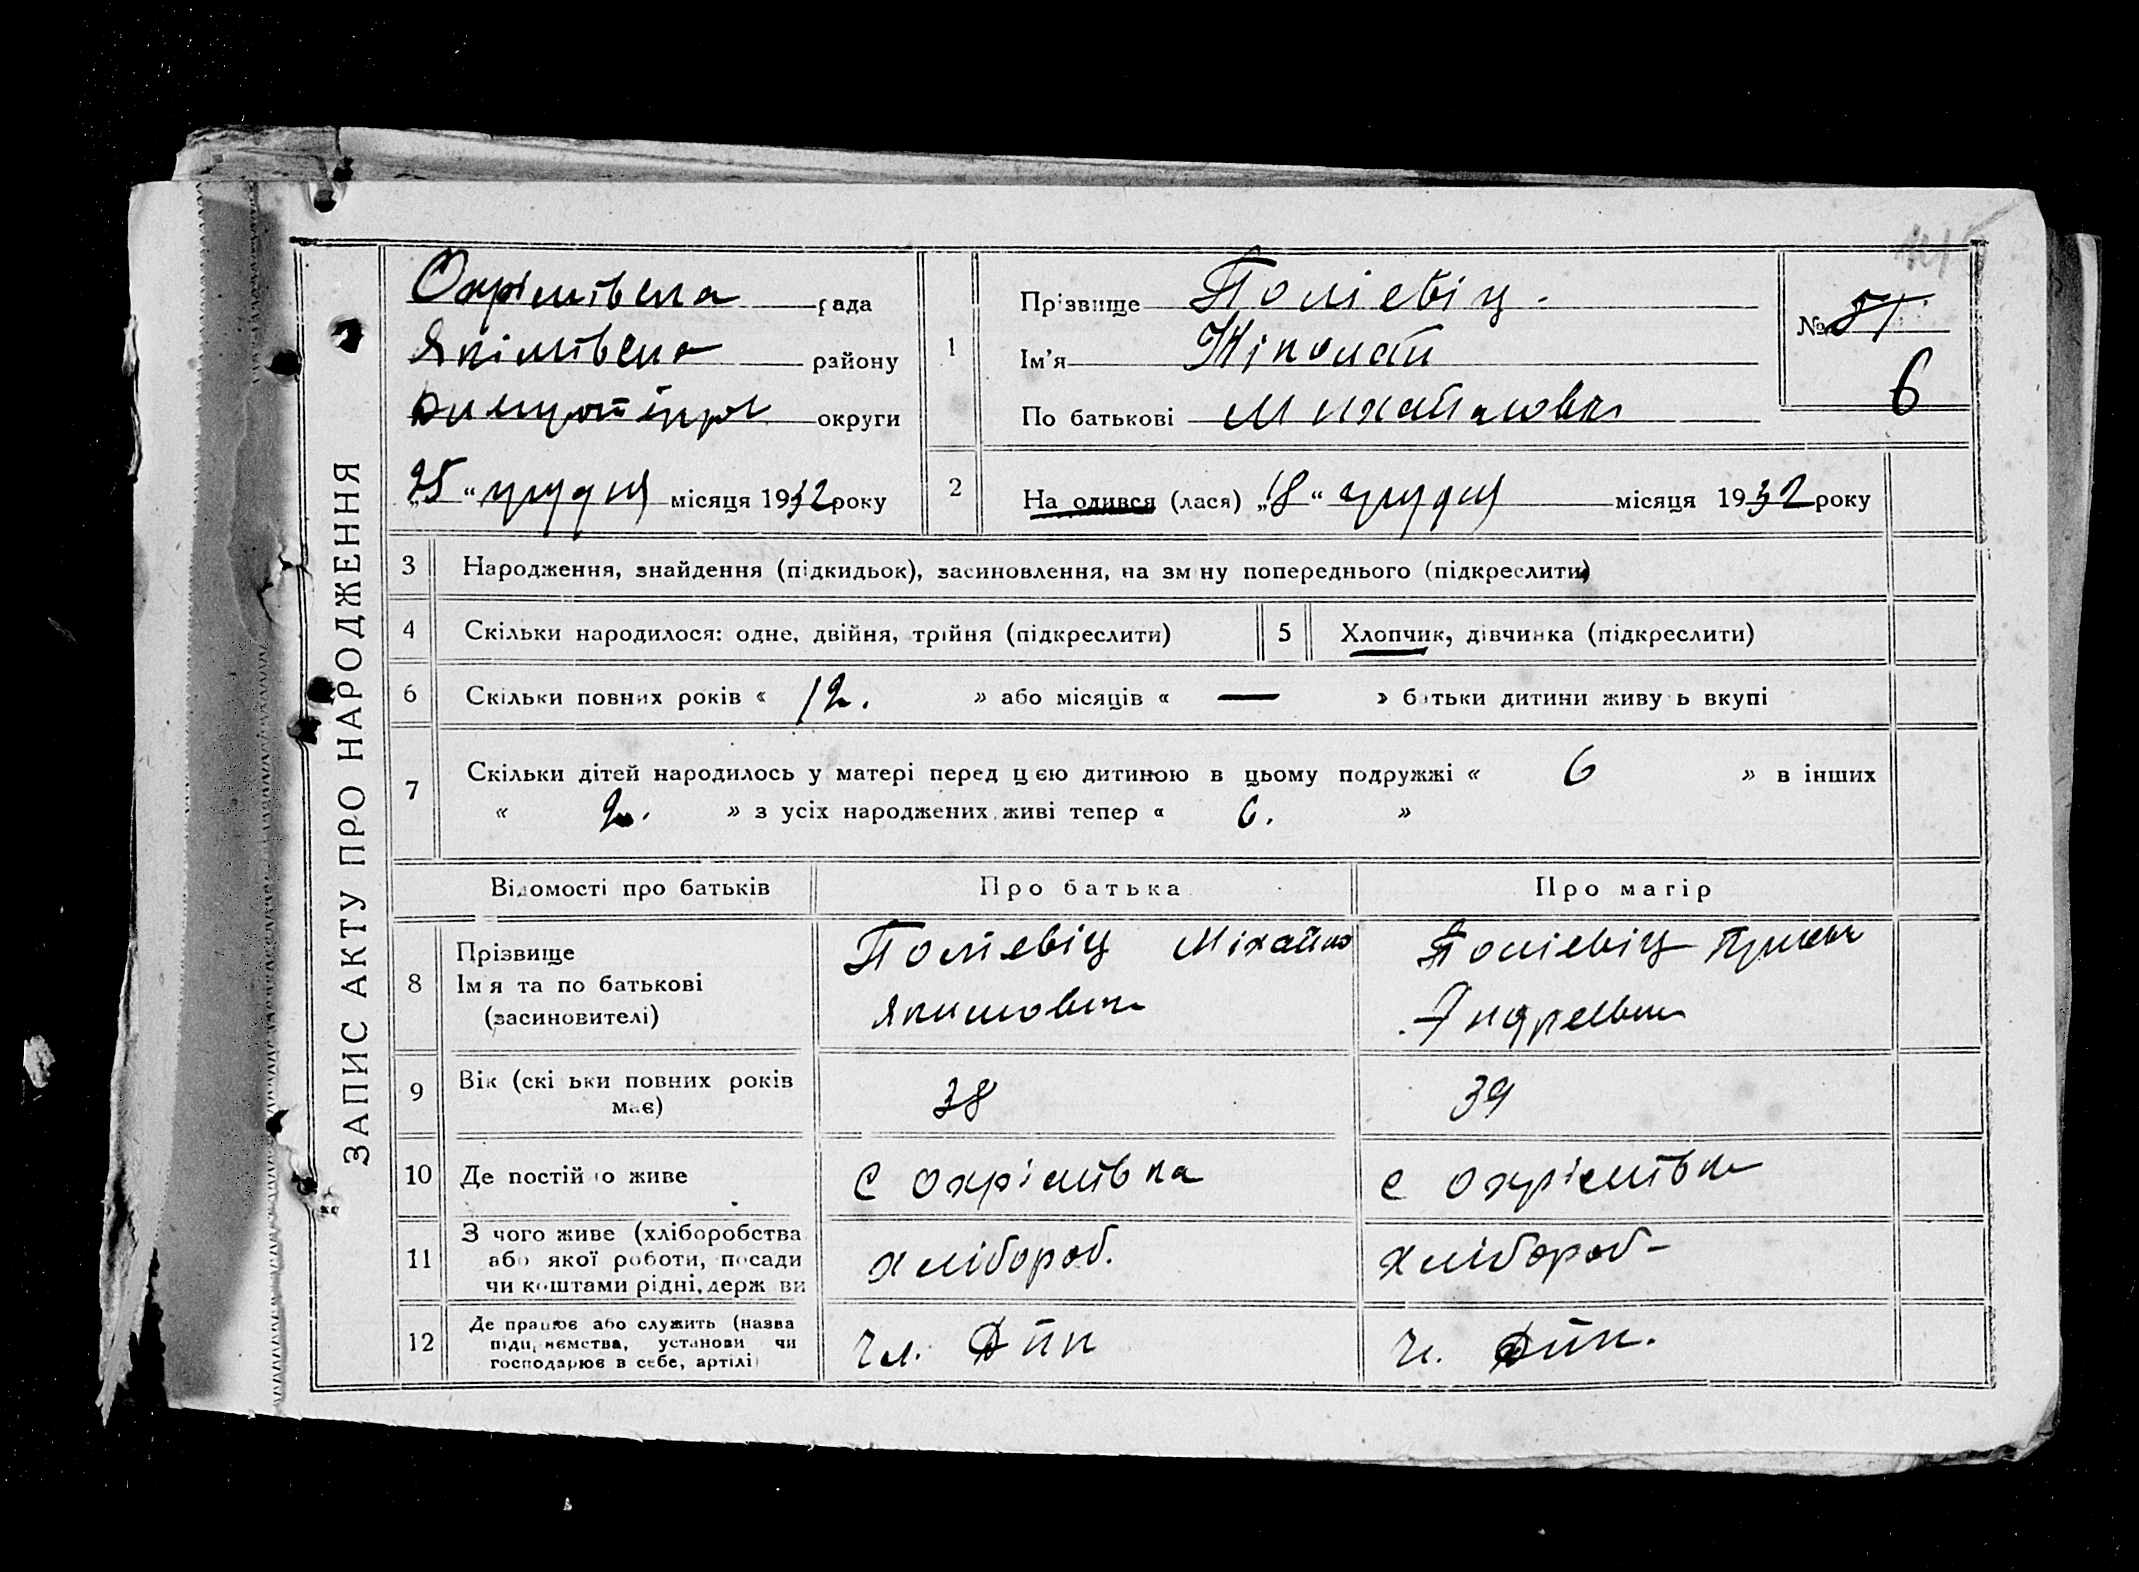 ЗАПИС АКТУ ПРО НАРОДЖЕННЯ
Охрімівска рада
Якімівска району
округи
„25“ грудня місяця 1932 року
1
Прізвище Полієвіц.
Ім'я Ніколай
По батькові Михайлович
№ 51
6
2
На одився (лася) „18“ грудня місяця 1932 року
3 Народження, знайдення (підкидьок), засиновлення, на зм ну попереднього (підкреслити)
4 Скільки народилося: одне, двійня, трійня (підкреслити)
5 Хлопчик, дівчинка (підкреслити)
6 Скільки повних років « 12. » або місяців « — » батьки дитини живу ь вкупі
7 Скільки дітей народилось у матері перед цією дитиною в цьому подружжі « 6 » в інших
« 2. » з усіх народжених живі тепер « 6. »
Відомості про батьків Про батька Про матір
8 Прізвище
Імя та по батькові
(засиновителі)
Полієвіц Міхайло
Якимович
Полієвіц
Андреевна
9 Вік (скі ьки повних років
має)
38
39
10 Де постій о живе
с Охрімівка
с Охрімівка
11 З чого живе (хліборобства
або якої роботи, посади
чи коштами рідні, держ ви
хлібороб.
хлібороб-
12 Де працює або служить (назва
підприємства, установи чи
господарює в себе, артілі)
чл.
ч.